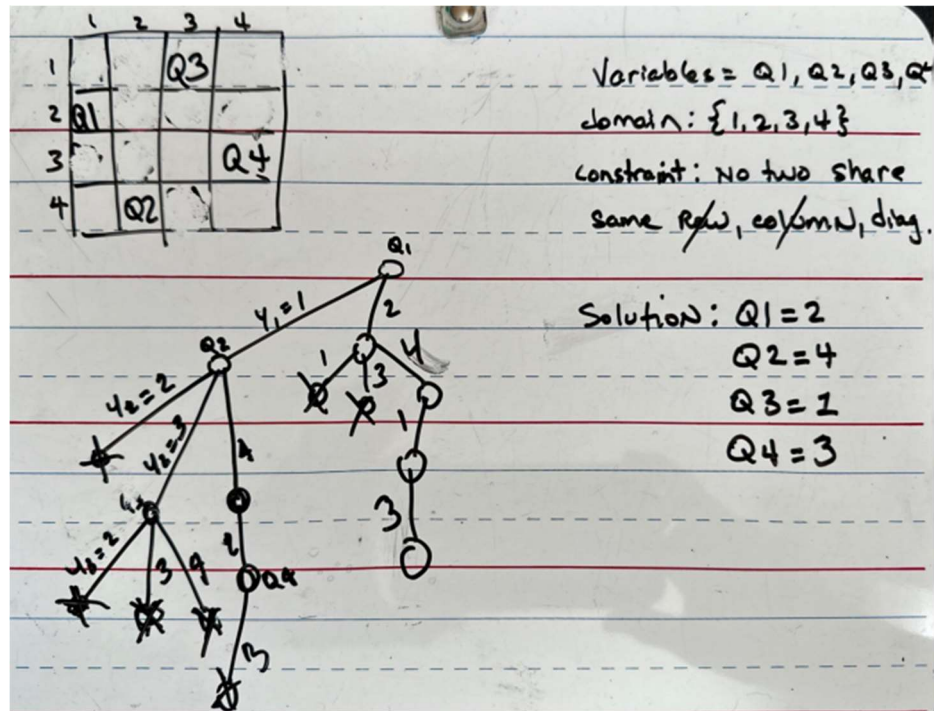 1 2 3 4
1 Q3
2 Q1
3 Q4
4 Q2
Variables = Q1, Q2, Q3, Q4
domain: {1,2,3,4}
constraint: No two share
same Row, column, diag.
Solution: Q1=2
Q2=4
Q3=1
Q4=3
Q1
y1=1
2
Q2
1
3
4
y2=2
y2=3
4
1
y3=2
3
4
2
Q4
3
3